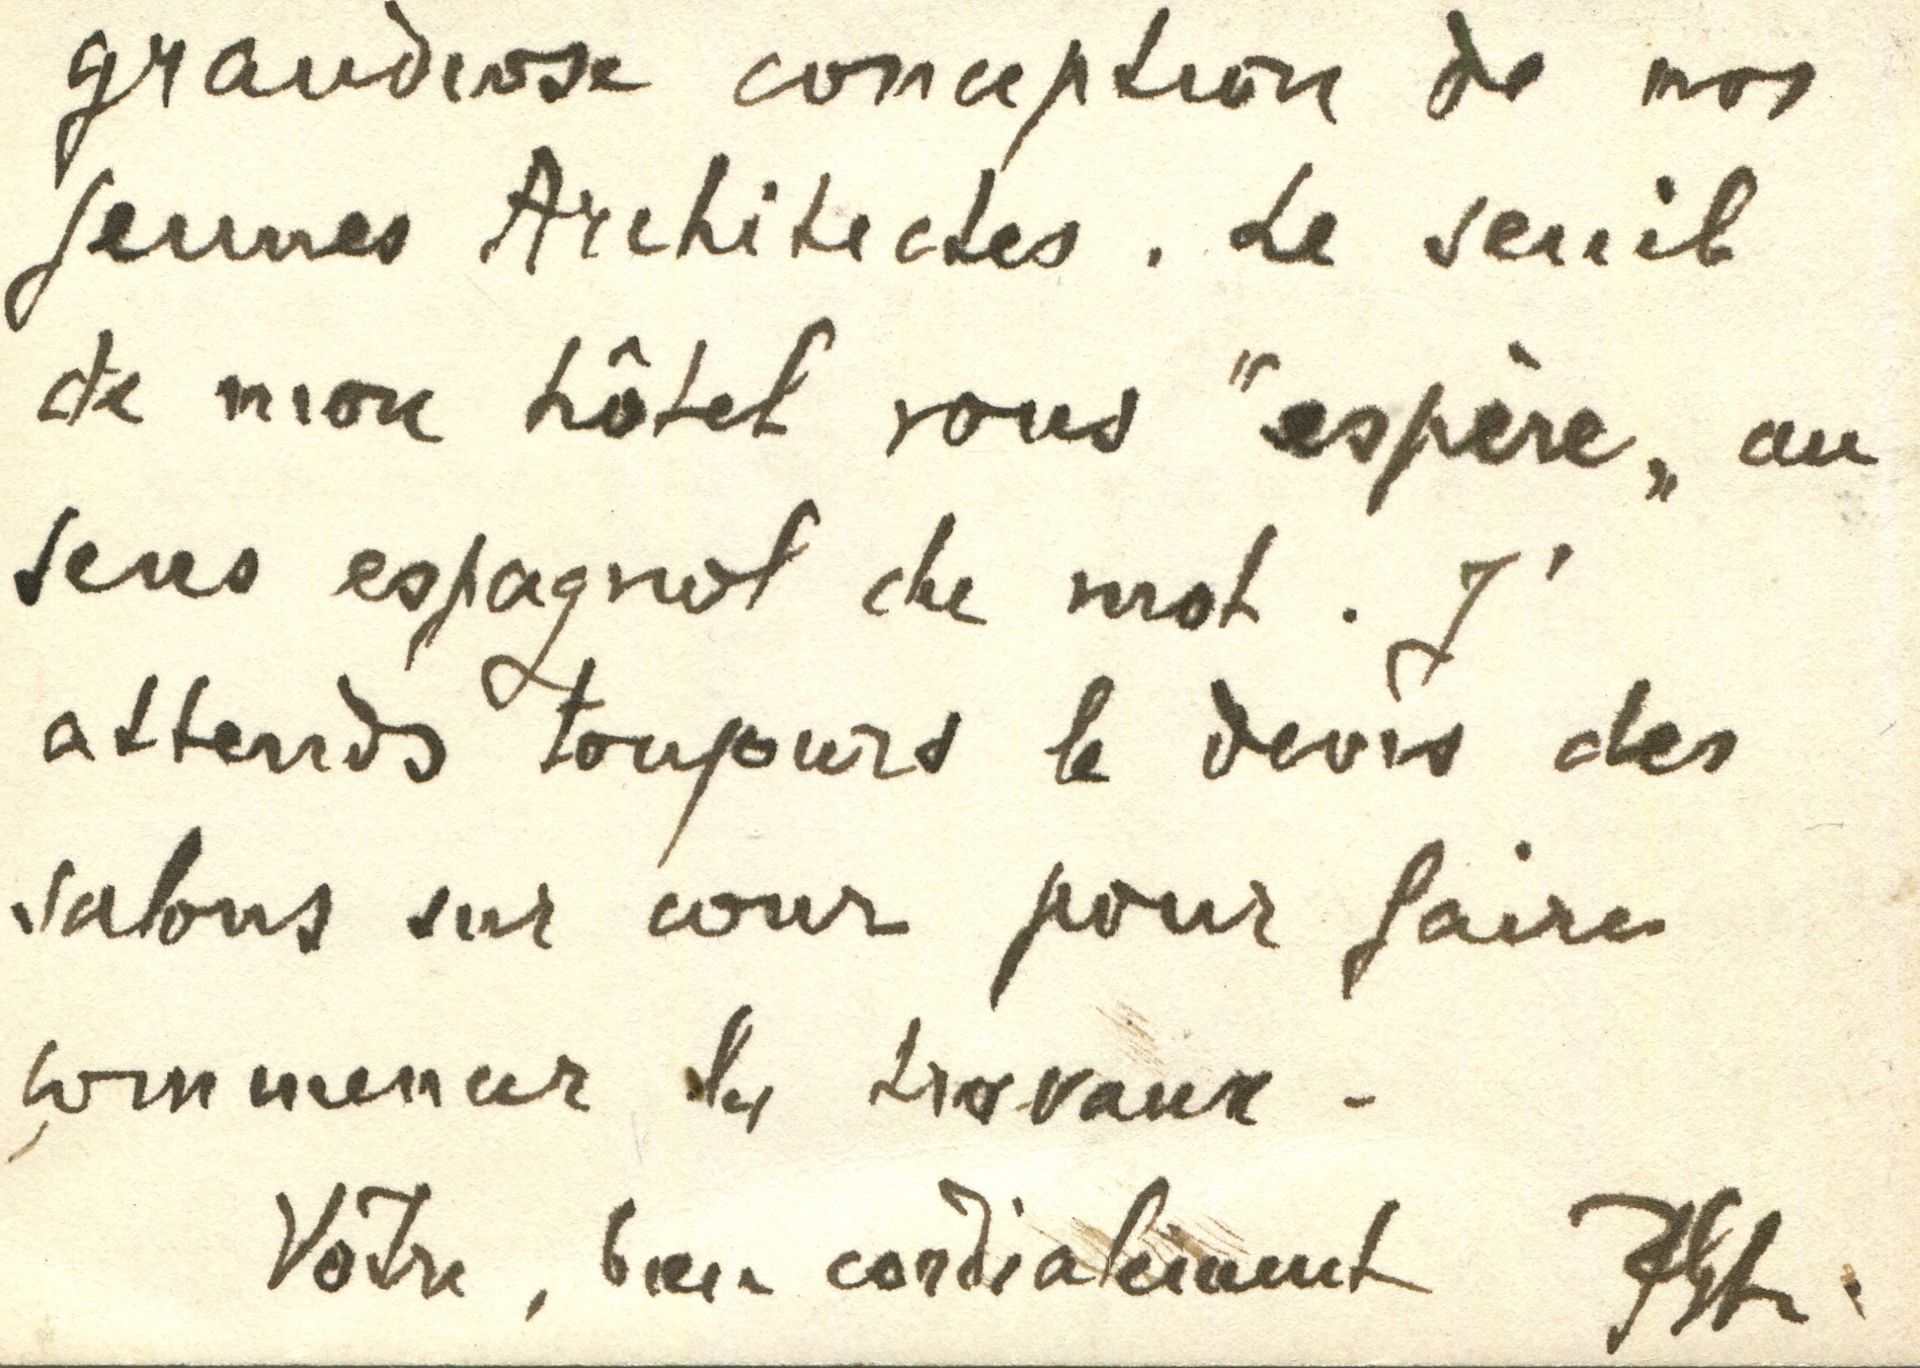 grandiose conception de nos
jeunes Architectes. Le seuil
de mon hôtel vous "espère„ au
sens espagnol du mot. J'
attends toujours le devis des
salons sur cour pour faire
commencer les travaux -
Votre, bien cordialement